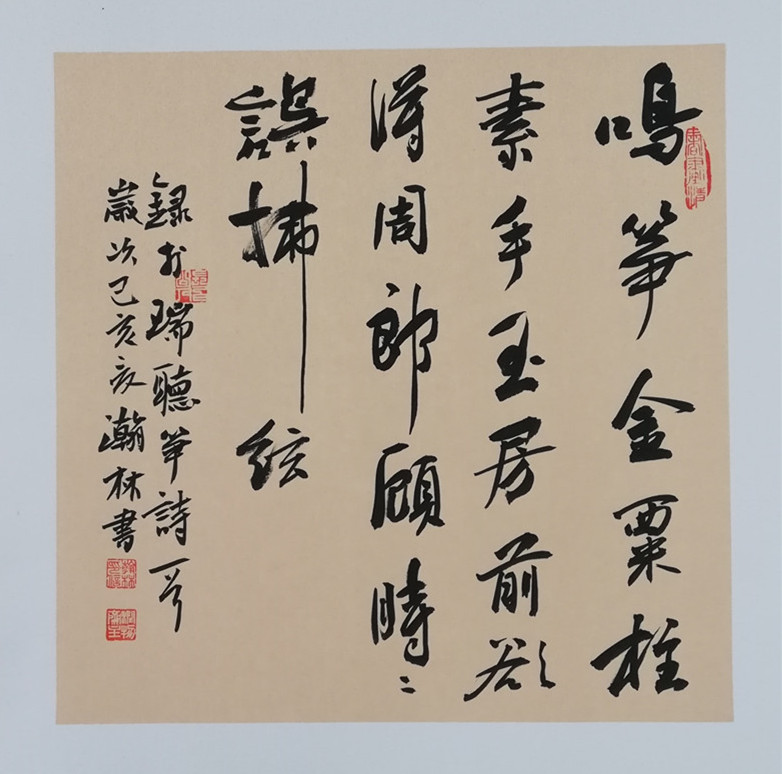 鳴筝金粟柱
素手玉房前欲
得周郎顧時〻
誤拂絃
録於瑞聽筝詩一首
歲次己亥亥瀚林書